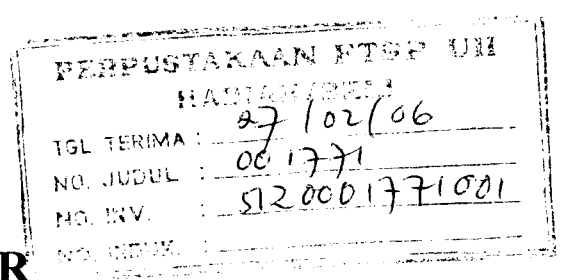 PERPUSTAKAAN FTSP UII
HADIAH/BELI
TGL TERIMA : 27/02/06
NO. JUDUL : 001771
NO. INV. : 5120001771001
NO. INDUK. :
R